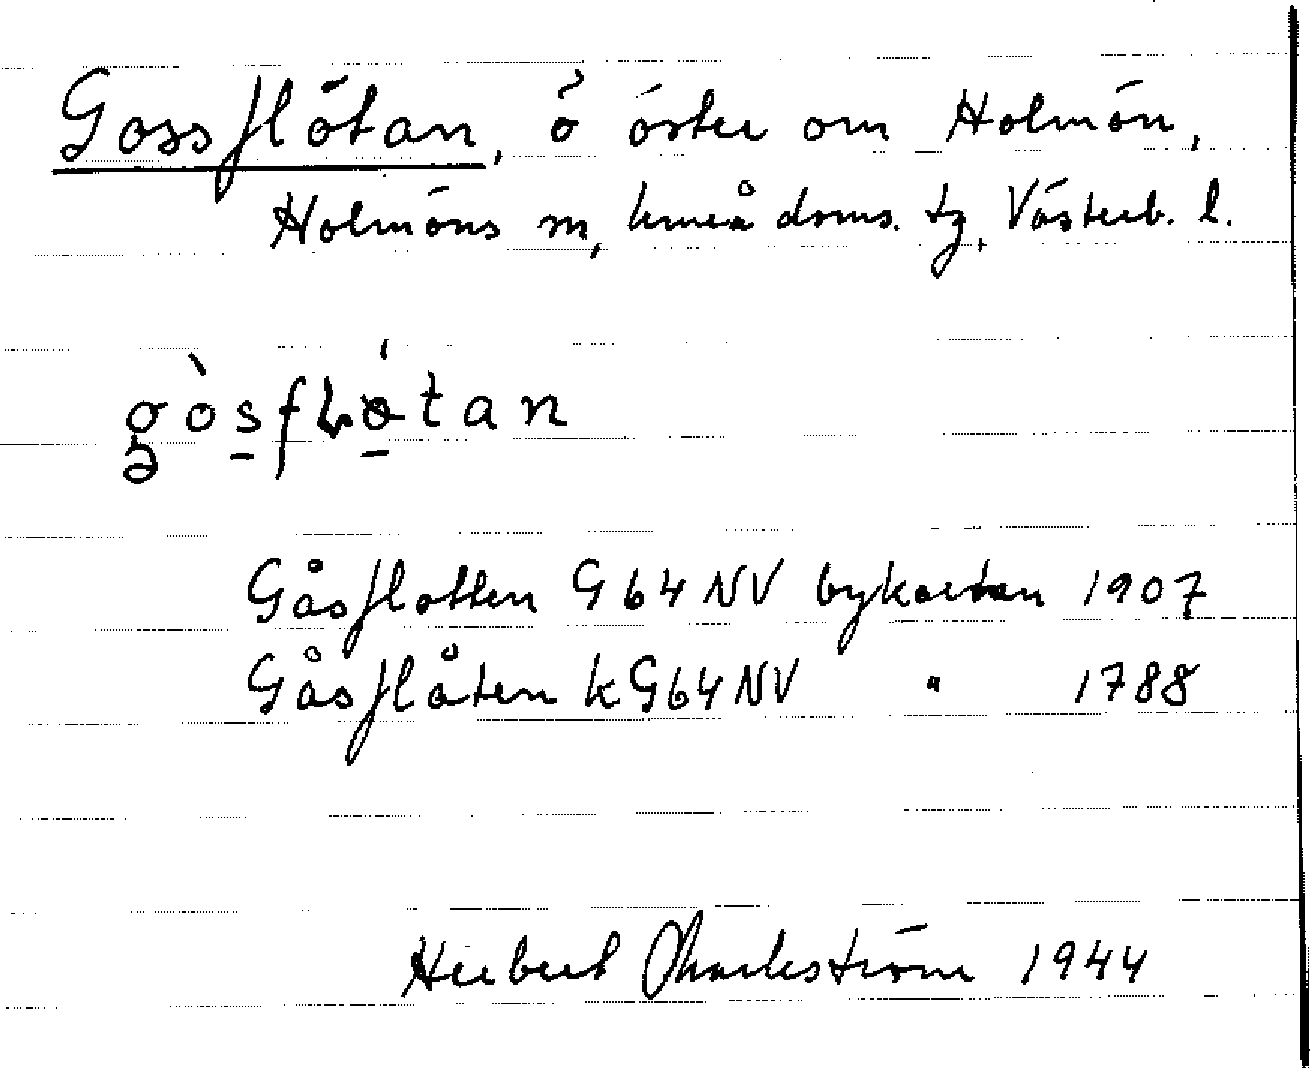 Gossflötan, ö öster om Holmön,
Holmöns sn, Umeå doms. tg, Västerb. l.
gòsfLǿtan
Gåsflotten G64NV bykartan 1907
Gåsflåten kG64NV " 1788
Herbert Markström 1944